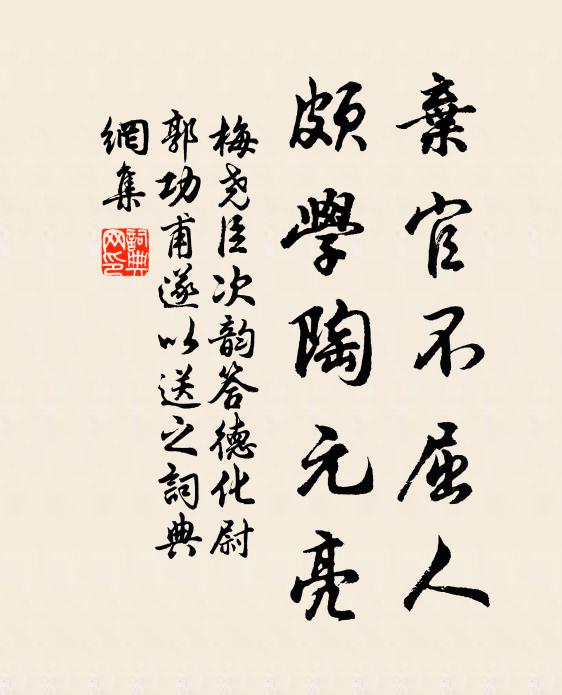 棄官不屈人
頗學陶元亮
梅堯臣次韵答德化尉
郭功甫遂以送之詞典
網集
詞典
网印